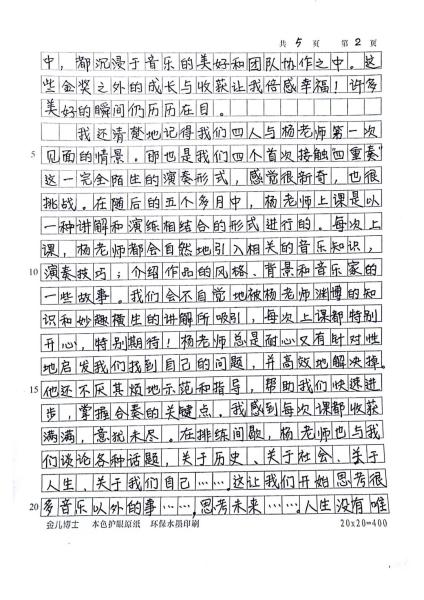 共 5 页 第 2 页
中，都沉浸于音乐的美好和团队协作之中。这
些金奖之外的成长与收获让我倍感幸福！许多
美好的瞬间仍历历在目。
我还清楚地记得我们四人与杨老师第一次
5 见面的情景。那也是我们四个首次接触“四重奏”
这一完全陌生的演奏形式，感觉很新奇，也很
挑战。在随后的五个多月中，杨老师上课是以
一种讲解和演练相结合的形式进行的。每次上
课，杨老师都会自然地引入相关的音乐知识，
10 演奏技巧；介绍作品的风格、背景和音乐家的
一些故事。我们会不自觉地被杨老师渊博的知
识和妙趣横生的讲解所吸引，每次上课都特别
开心，特别期待！杨老师总是耐心又有针对性
地启发我们找到自己的问题，并高效地解决掉。
15 他还不厌其烦地示范和指导，帮助我们快速进
步，掌握合奏的关键点。我感到每次课都收获
满满，意犹未尽。在排练间歇，杨老师也与我
们谈论各种话题，关于历史、关于社会、关于
人生、关于我们自己……。这让我们开始思考很
20 多音乐以外的事……，思考未来……。人生没有唯
会儿博士 本色护眼原纸 环保水墨印刷 20x20=400